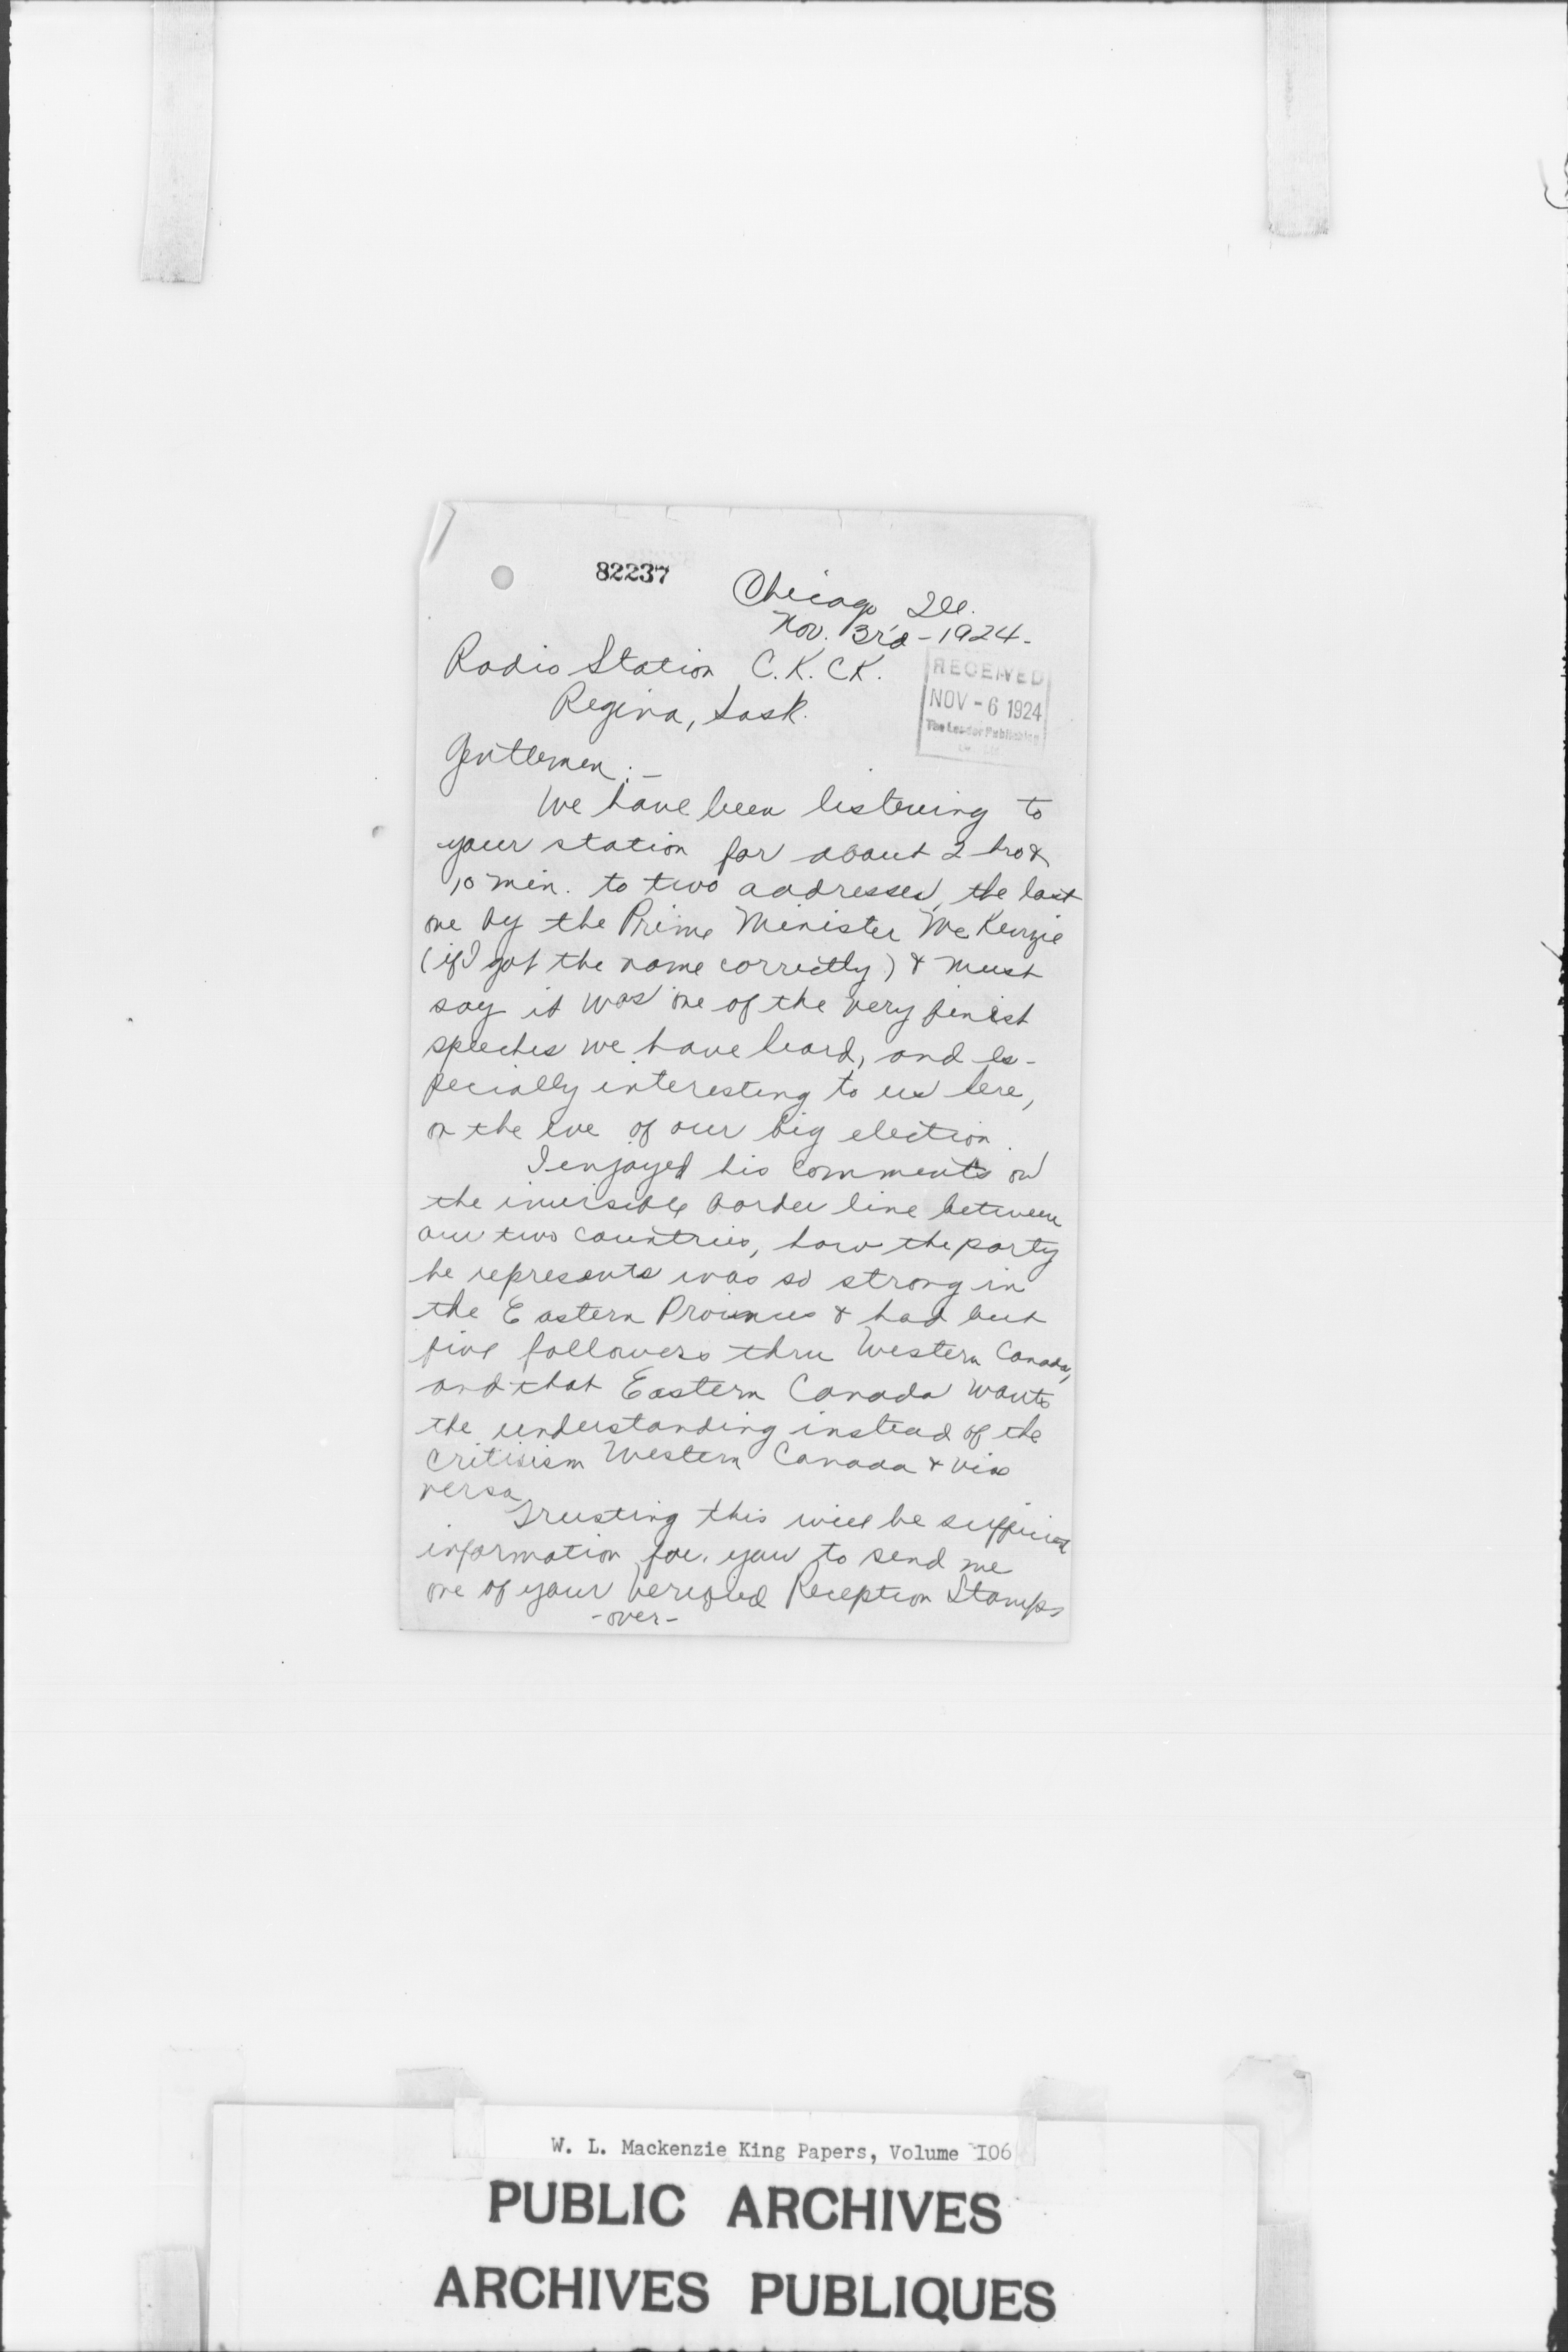 82237
Chicago, Ill.
Nov. 3rd - 1924 -
Radio Station C.K.CK.
Regina, Sask.
RECEIVED
NOV - 6 1924
The Leader Publishing
Gentlemen :-
We have been listening to
your station for about 2 hrs &
10 min. to two addresses, the last
one by the Prime Minister McKenzie
(if I got the name correctly) & must
say it was one of the very finest
speeches we have heard, and es-
pecially interesting to us here,
on the eve of our big election.
I enjoyed his comments on
the invisible border line between
our two countries, how the party
he represents was so strong in
the Eastern Provinces & had but
five followers thru Western Canada,
and that Eastern Canada wants
the understanding instead of the
critisism Western Canada & vice
versa.
Trusting this will be sufficient
information for you to send me
one of your Verified Reception Stamps
- over -
W. L. Mackenzie King Papers, Volume 106
PUBLIC ARCHIVES
ARCHIVES PUBLIQUES